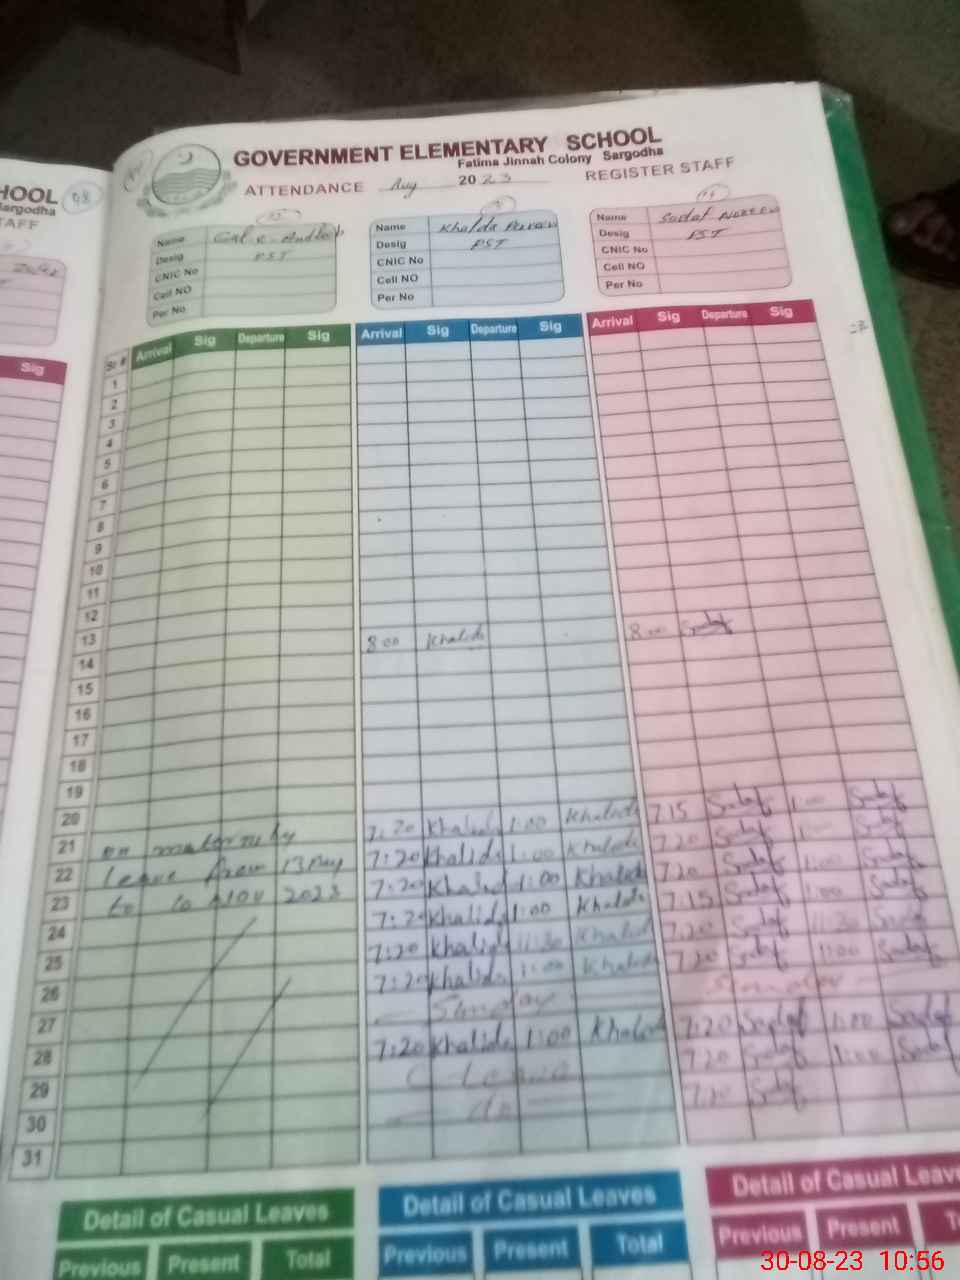 HOOL
Sargodha
TAFF
08
Sig
GOVERNMENT ELEMENTARY SCHOOL
Fatima Jinnah Colony Sargodha
ATTENDANCE Aug 2023 REGISTER STAFF
Name
Desig PST
CNIC No
Cell NO
Per No
Name Khalda Parveen
Desig PST
CNIC No
Cell NO
Per No
Name Sadaf Noreen
Desig PST
CNIC No
Cell NO
Per No
Sr # Arrival Sig Departure Sig Arrival Sig Departure Sig Arrival Sig Departure Sig
1
2
3
4
5
6
7
8
9
10
11
12
13 8 00 Khalida 8 00 Sadaf
14
15
16
17
18
19
20 7:20 Khalida 1:00 Khalida 7:15 Sadaf 1:00 Sadaf
21 on maternity 7:20 Khalida 1:00 Khalida 7:20 Sadaf Sadaf
22 leave from 13 May 7:20 Khalida 1:00 Khalida 7:20 Sadaf 1:00 Sadaf
23 to 10 NOV 2023 7:20 Khalida 1:00 Khalida 7:15 Sadaf 1:00 Sadaf
24 7:20 Khalida 11:30 Khalida 7:20 Sadaf 11:30 Sadaf
25 7:20 Khalida 1:00 Khalida 7:20 Sadaf 1:00 Sadaf
26 Sunday Sunday
27 7:20 Khalida 1:00 Khalida 7:20 Sadaf 1:00 Sadaf
28 Leave 7:20 Sadaf 1:00 Sadaf
29 do 7:20 Sadaf
30
31
Detail of Casual Leaves
Previous Present Total
Detail of Casual Leaves
Previous Present Total
Detail of Casual Leave
Previous Present T
30-08-23 10:56